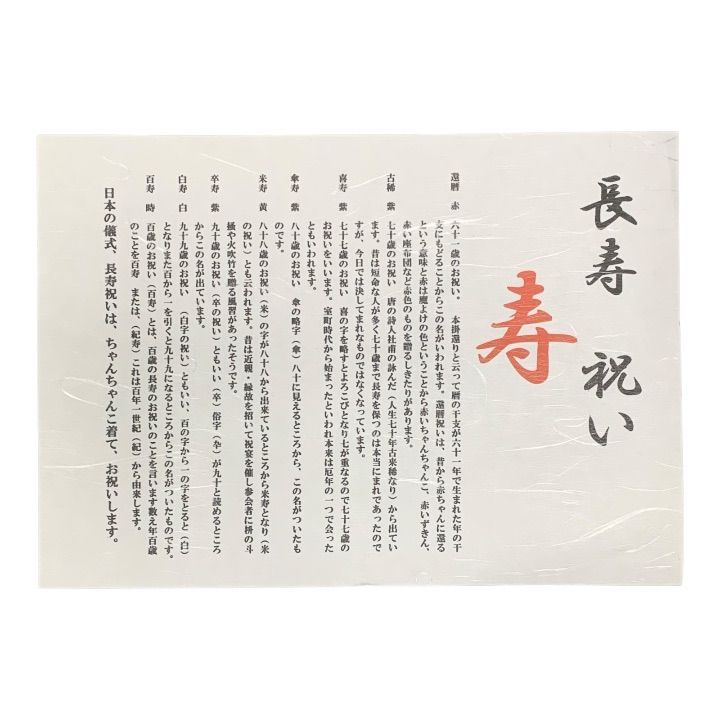 長寿 祝い
寿
還暦 赤 六十一歳のお祝い。 本掛還りと云って暦の干支が六十一年で生まれた年の干
支にもどることからこの名がいわれます。還暦祝いは、昔から赤ちゃんに還る
という意味と赤は魔よけの色ということから赤いちゃんちゃんこ、赤いずきん、
赤い座布団など赤色のものを贈るしきたりがあります。
古稀 紫 七十歳のお祝い 唐の詩人杜甫の詠んだ（人生七十年古来稀なり）から出てい
ます。昔は短命な人が多く七十歳まで長寿を保つのは本当にまれであったので
すが、今日では決してまれなものではなくなっています。
喜寿 紫 七十七歳のお祝い 喜の字を略すとよろこびとなり七が重なるので七十七歳の
お祝いをいいます。室町時代から始まったといわれ本来は厄年の一つで会った
ともいわれます。
傘寿 紫 八十歳のお祝い 傘の略字（傘）八十に見えるところから、この名がついたも
のです。
米寿 黄 八十八歳のお祝い（米）の字が八十八から出来ているところから米寿となり（米
の祝い）とも云われます。昔は近親・縁故を招いて祝宴を催し参会者に枡の斗
掻や火吹竹を贈る風習があったそうです。
卒寿 紫 九十歳のお祝い（卒の祝い）ともいい（卒）俗字（卆）が九十と読めるところ
からこの名が出ています。
白寿 白 九十九歳のお祝い（白字の祝い）ともいい、百の字から一の字をとると（白）
となりまた百から一を引くと九十九になるところからこの名がついたものです。
百寿 時 百歳のお祝い（百寿）とは、百歳の長寿のお祝いのことを言います数え年百歳
のことを百寿 または、（紀寿）これは百年一世紀（紀）から由来します。
日本の儀式、長寿祝いは、ちゃんちゃんこ着て、お祝いします。